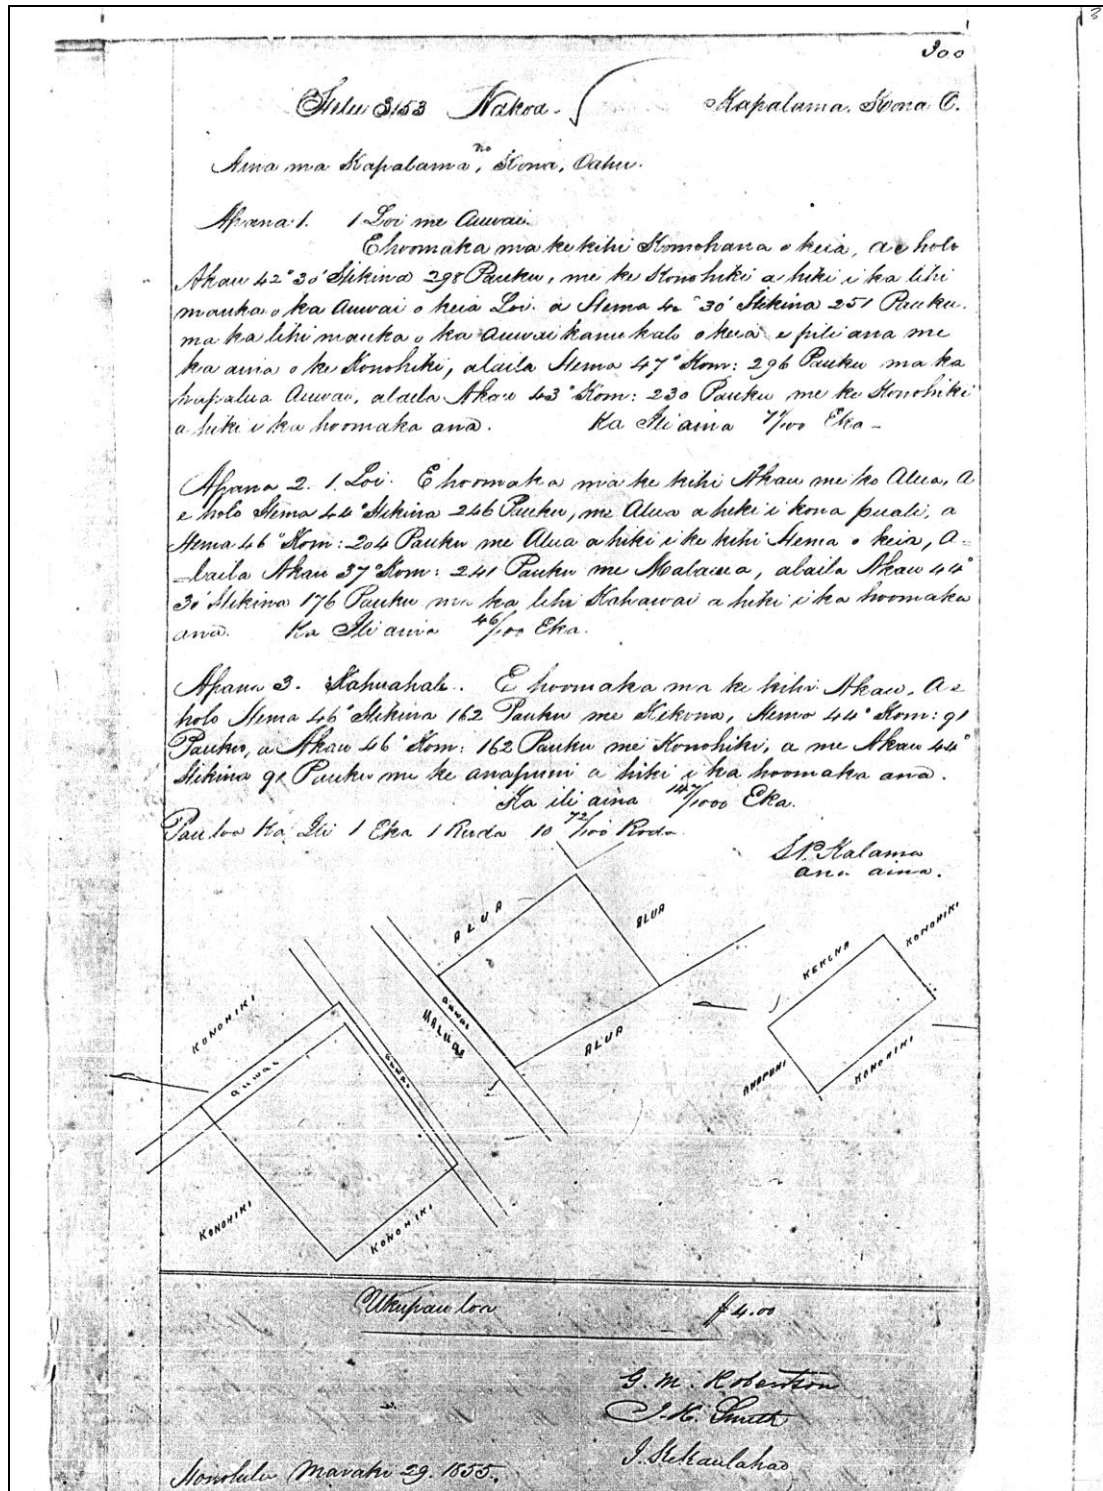 300
Helu 3153 Nakoa. Kapalama. Kona O.
Aina ma Kapalama no, Kona, Oahu.
Apana 1. 1 Loi me Auwai.
E hoomaka ma ke kihi Komohana o keia, a e holo
Akau 42° 30' Hikina 298 Pauku, me ke Konohiki a hiki i ka lihi
mauka o ka Auwai o keia Loi. a Hema 42° 30' Hikina 251 Pauku.
ma ka lihi mauka o ka Auwai kanu kalo o keia e pili ana me
ka aina o ke Konohiki, alaila Hema 47° Kom: 296 Pauku ma ka
hapalua Auwai, alaila Akau 43° Kom: 230 Pauku me ke Konohiki
a hiki i ka hoomaka ana. Ka Ili aina 71/100 Eka -
Apana 2. 1. Loi. E hoomaka ma ke kihi Akau me ko Alua, a
e holo Hema 44° Hikina 246 Pauku, me Alua a hiki i kona puali, a
Hema 46° Kom: 204 Pauku me Alua a hiki i ke kihi Hema o keia, a-
-laila Akau 37° Kom: 241 Pauku me Malaea, alaila Akau 44°
30' Hikina 176 Pauku ma ka lihi Kahawai a hiki i ka hoomaka
ana. Ka Ili aina 46/100 Eka.
Apana 3. Kahuahale. E hoomaka ma ke kihi Akau. A e
holo Hema 46° Hikina 162 Pauku me Kekona, Hema 44° Kom: 91
Pauku, a Akau 46° Kom: 162 Pauku me Konohiki, a me Akau 44°
Hikina 91 Pauku me ke anapuni a hiki i ka hoomaka ana.
Ka ili aina 147/1000 Eka.
Pau loa Ka Ili 1 Eka 1 Ruda 10 72/100 Roda
S.P. Kalama
ana aina.
ALUA
ALUA
KEKONA
KONOHIKI
KONOHIKI
auwai
auwai
auwai
ALUA
ANAPUNI
KONOHIKI
KONOHIKI
KONOHIKI
Uku pau loa $4.00
G. M. Robertson
J. H. Smith
J. Kekaulahao
Honolulu Maraki 29. 1855.